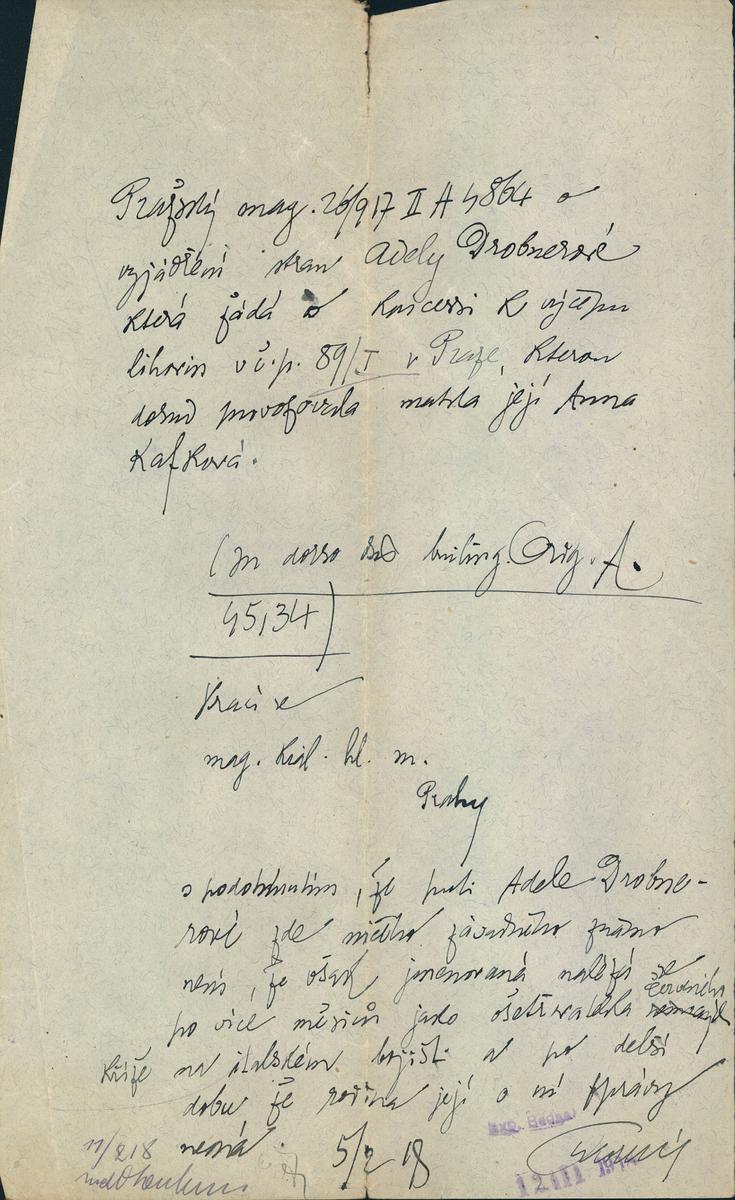 Pražský mag. 26/9 17 II A 4864 o
vyjádření stran Adely Drobnerové
která žádá o koncessi k výčepu
lihovin v č. p. 89/I v Praze, kterou
dosud provozovala matka její Anna
Kafková.
(In dorso des Orig. A.
45134)
Vrací se
mag. král. hl. m.
Prahy
s podotknutím, že proti Adele Drobne-
rové zde ničeho závadného známo
není, že však jmenovaná nalézá se
po více měsíců jako ošetřovatelka červeného
kříže na italském bojišti a po delší
dobu že rodina její o ní zprávy
nemá.
5/2 18
11/2 18
Exp. 
12 III.